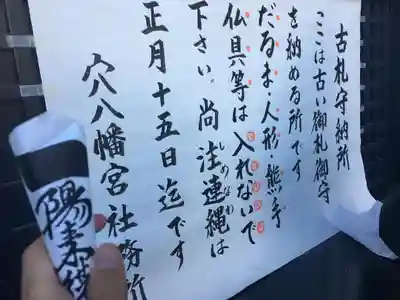 古札守納所
ここは古い御札御守
を納める所です
だるま・人形・熊手
仏具等は入れないで
下さい。尚注連縄は
しめなわ
正月十五日迄です
穴八幡宮社務所
陽来復